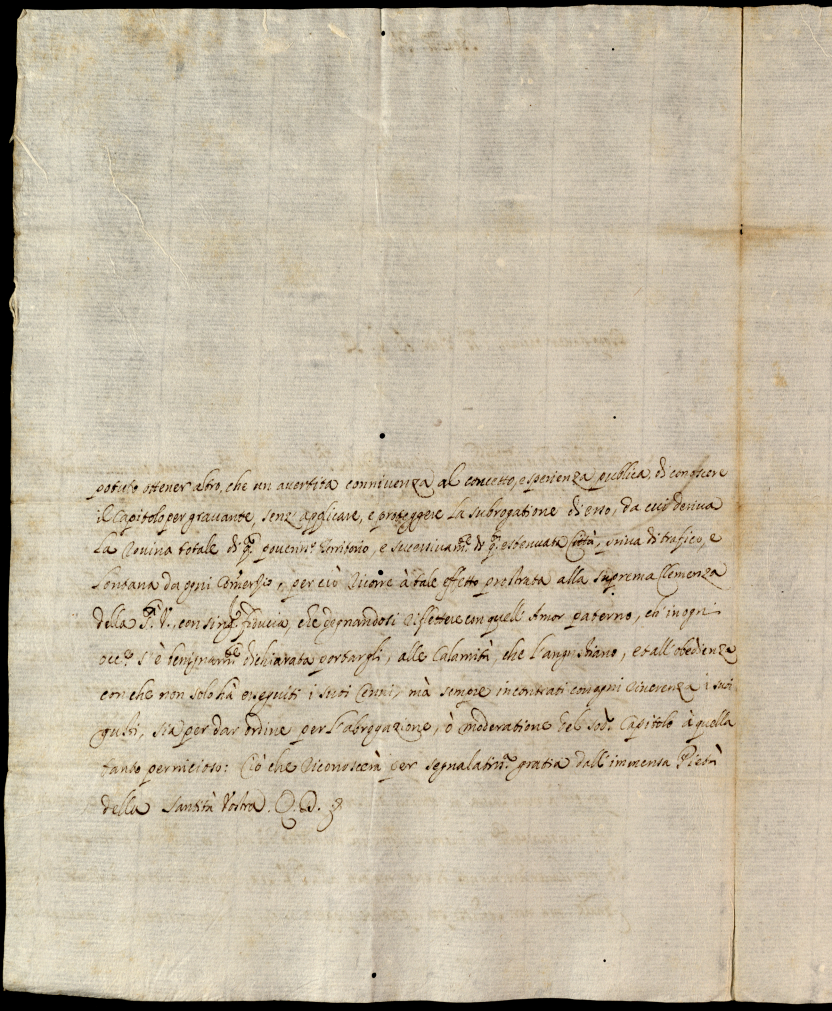 potuto ottener altro, che un avertita connivenza al concetto, esperienza publica, di conoscere
il Capitolo per gravante, senz' applicare, e proteggere la subrogatione di esso, da cui deriva
la rovina totale di q.to poveriss.o territorio, e successivam.te di q.ta estenuata Città, priva di trafico, e
lontana da ogni Comersio, per ciò ricorre à tale effetto prostrata alla suprema Clemenza
della S.tà V., con sing.r fiducia, che degnandosi riflettere con quell' Amor paterno, ch' in ogni
occ.ne s' è benignam.te dichiarata portargli, alle Calamità, che l' angustiano, et all' obedienza
con che non solo hà eseguiti i suoi Cenni, mà sempre incontrati con ogni riverenza i suoi
gusti, sia per dar ordine per l' abrogazione, ò moderatione del sod.o Capitolo à quella
tanto pernicioso: Ciò che riconoscerà per segnalatiss.a gratia dall' immensa Pietà
della Santità Vostra. Q. D.